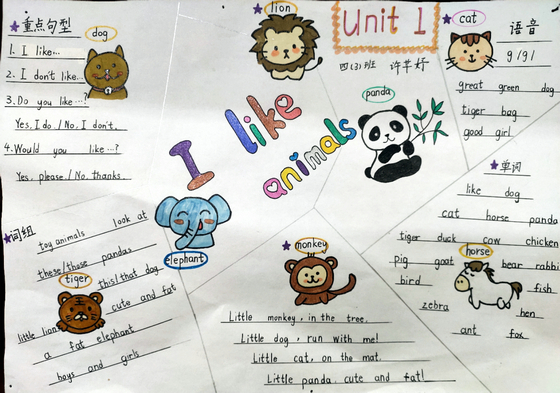 ★重点句型
dog
1. I like…
2. I don't like…
3. Do you like…?
Yes, I do. / No, I don't.
4. Would you like…?
Yes, please. / No, thanks.
lion
Unit 1
四(3)班 许芊妤
I like
animals
panda
★cat
语音
g /g/
great green dog
tiger bag
good girl
★单词
like dog
cat horse panda
tiger duck cow chicken
horse
pig goat bear rabbit
bird fish
zebra hen
ant fox
★词组
toy animals look at
these/those pandas
tiger
this/that dog
cute and fat
little lion
a fat elephant
boys and girls
elephant
★monkey
Little monkey, in the tree.
Little dog, run with me!
Little cat, on the mat.
Little panda, cute and fat!